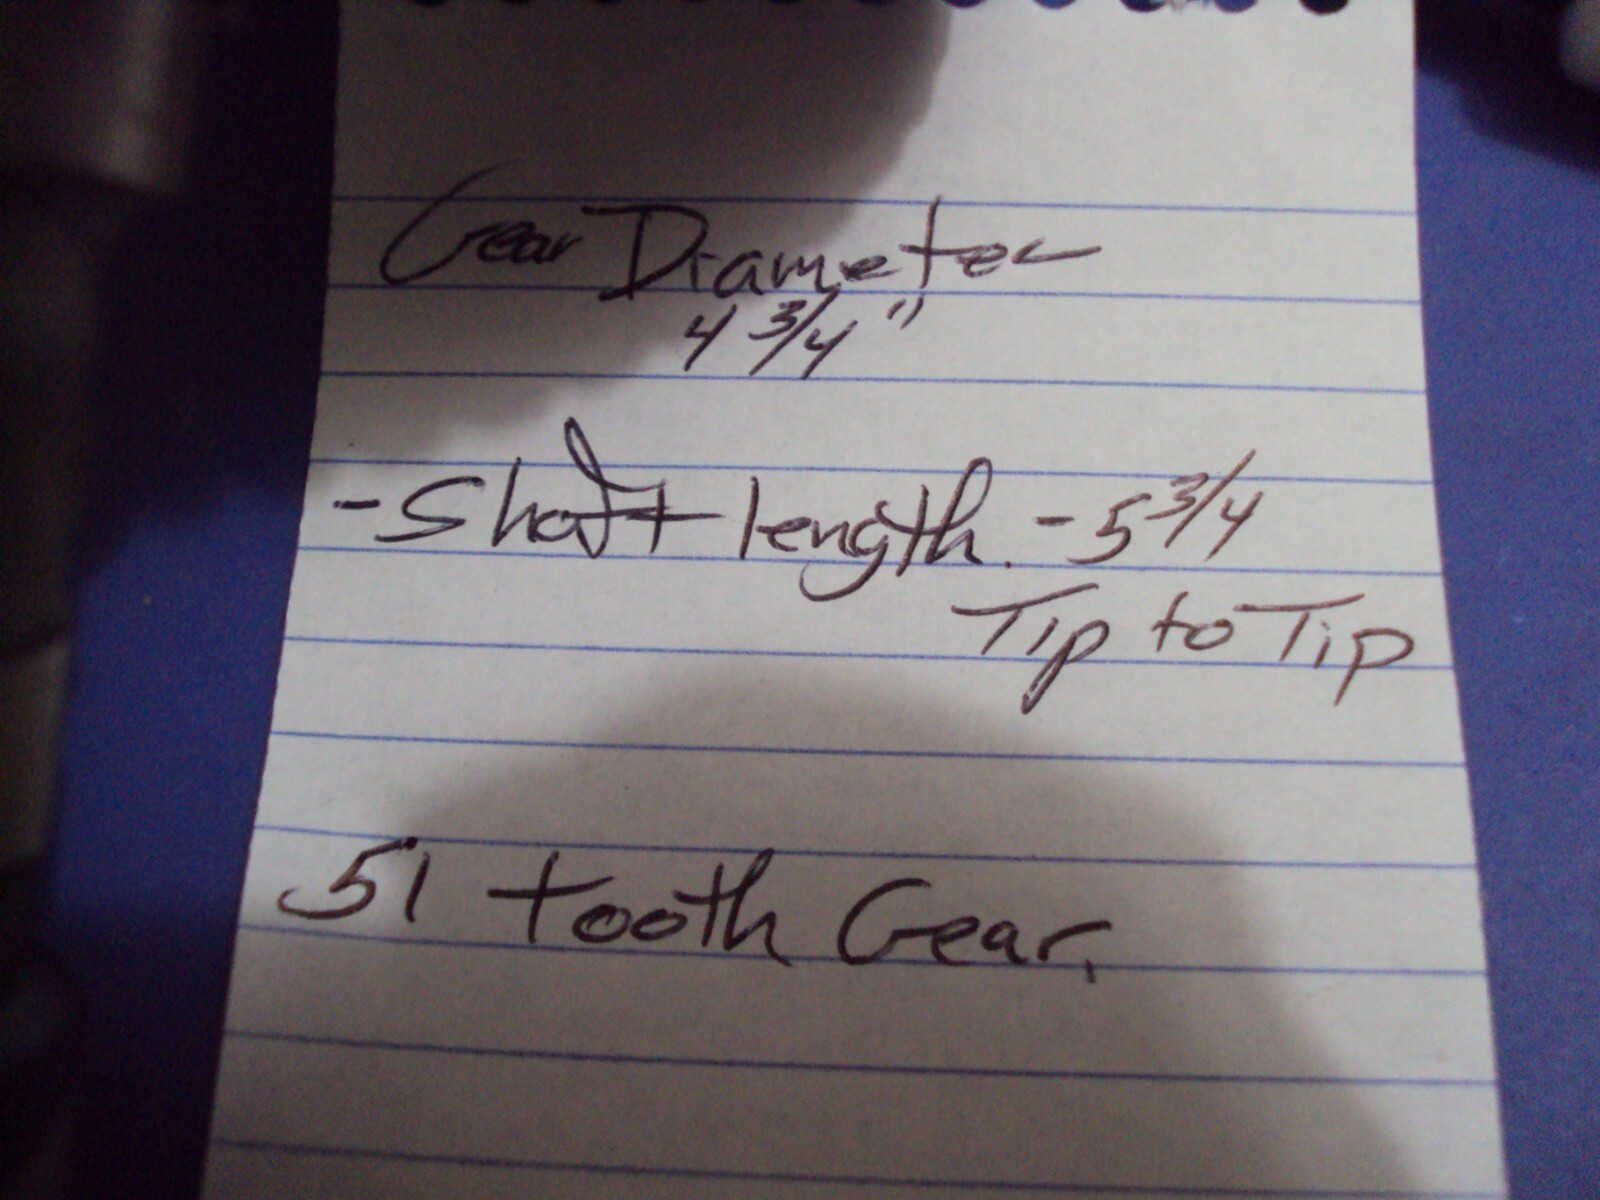 Gear Diameter
4 3/4"
- Shaft length. - 5 3/4
Tip to Tip
51 tooth Gear.